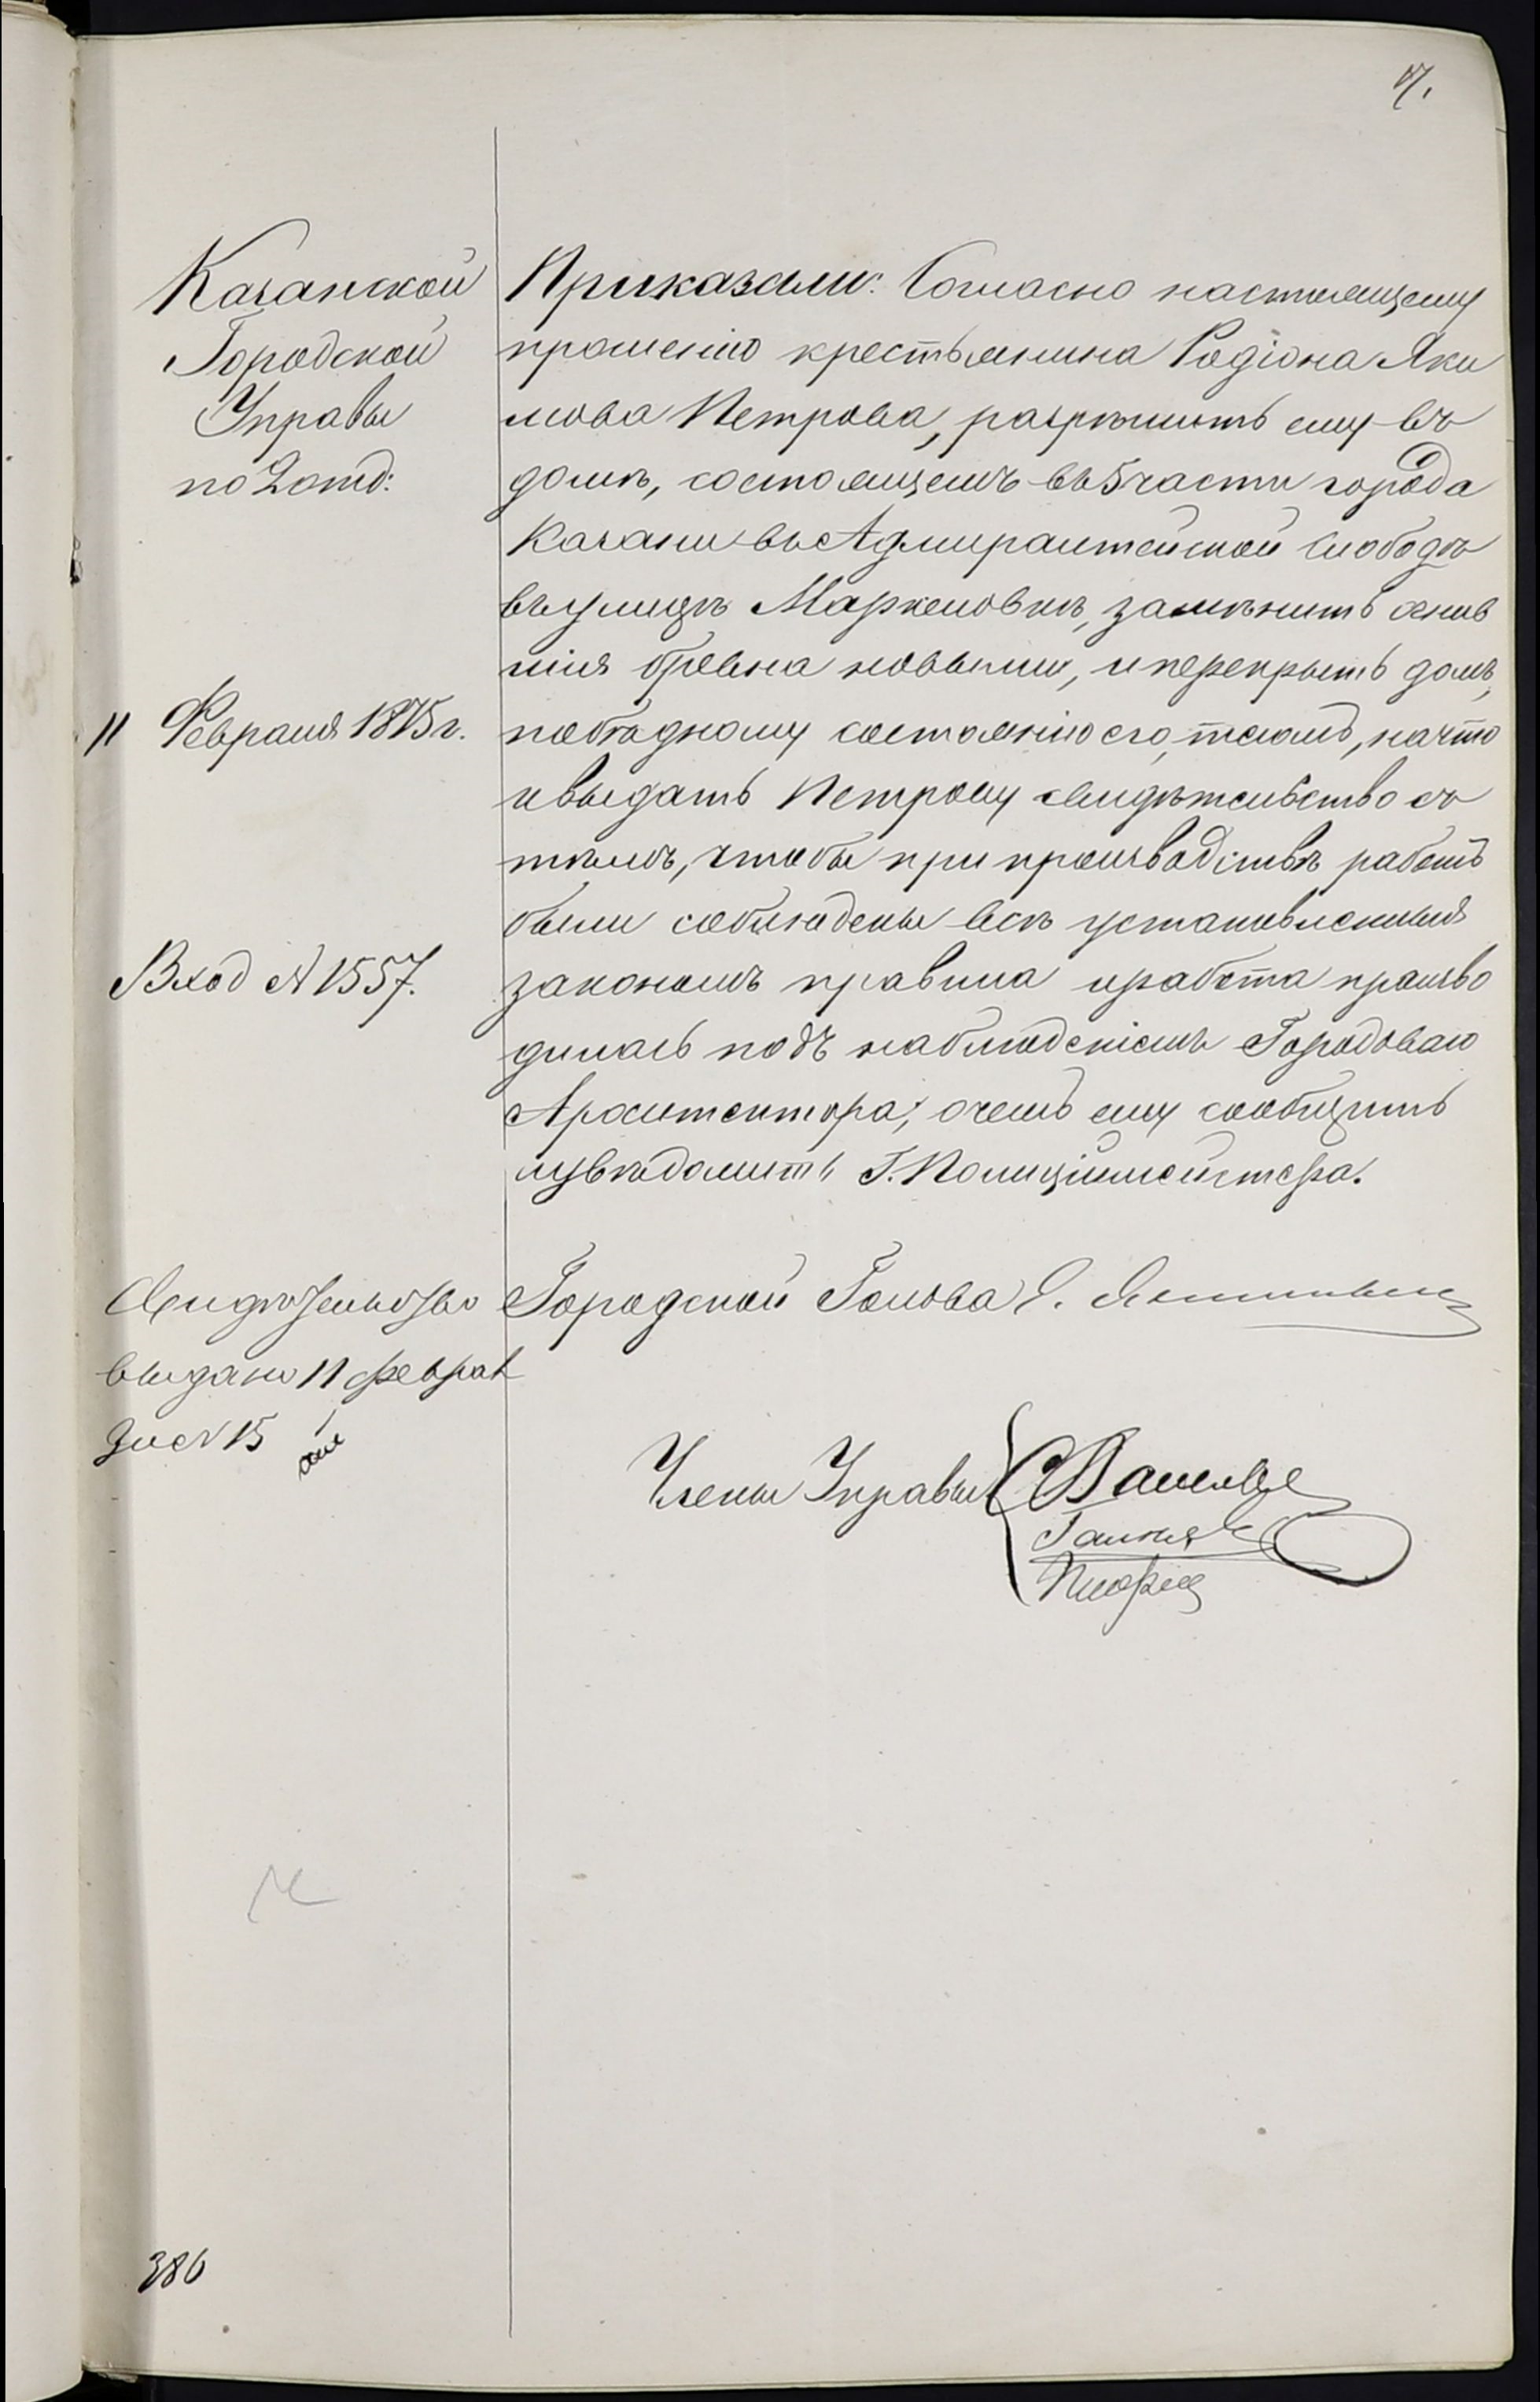 17.
Казанской
Городской
Управы
по 2 отд:
11 Февраля 1875 г.
Вход № 1557.
Приказали: Согласно настоящему
прошенію крестьянина Родіона Яки
мова Петрова, разрѣшить ему въ
домѣ, состоящемъ въ 5 части города
Казани въ Адмиралтейской Слободѣ
въ улицѣ Маркеловкѣ, замѣнить сгнив
шія бревна новыми, и перекрыть домъ,
по бѣдному состоянію его, тесомъ, на что
и выдать Петрову свидѣтельство съ
тѣмъ, чтобы при производствѣ работъ
были соблюдены всѣ установленныя
закономъ правила и работа произво
дилась подъ наблюденіемъ Городоваго
Архитектора; о чемъ ему сообщить
и увѣдомить Г. Полиціймейстера.
Свидѣтельство
выдано 11 феврал
за № 15
Городской Голова Е.
Члены Управы
386